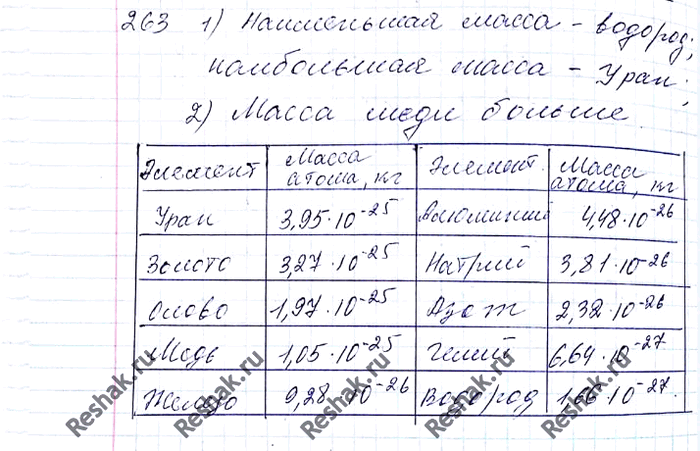 263 1) Наименьшая масса - водород;
наибольшая масса - Уран;
2) Масса меди больше
Элемент Масса атома, кг Элемент. Масса атома, кг
Уран 3,95·10⁻²⁵ Алюминий 4,48·10⁻²⁶
Золото 3,27·10⁻²⁵ Натрий 3,81·10⁻²⁶
Олово 1,97·10⁻²⁵ Азот 2,32·10⁻²⁶
Медь 1,05·10⁻²⁵ Гелий 6,64·10⁻²⁷
Железо 9,28·10⁻²⁶ Водород 1,66·10⁻²⁷.
Reshak.ru Reshak.ru Reshak.ru Reshak.ru Reshak.ru